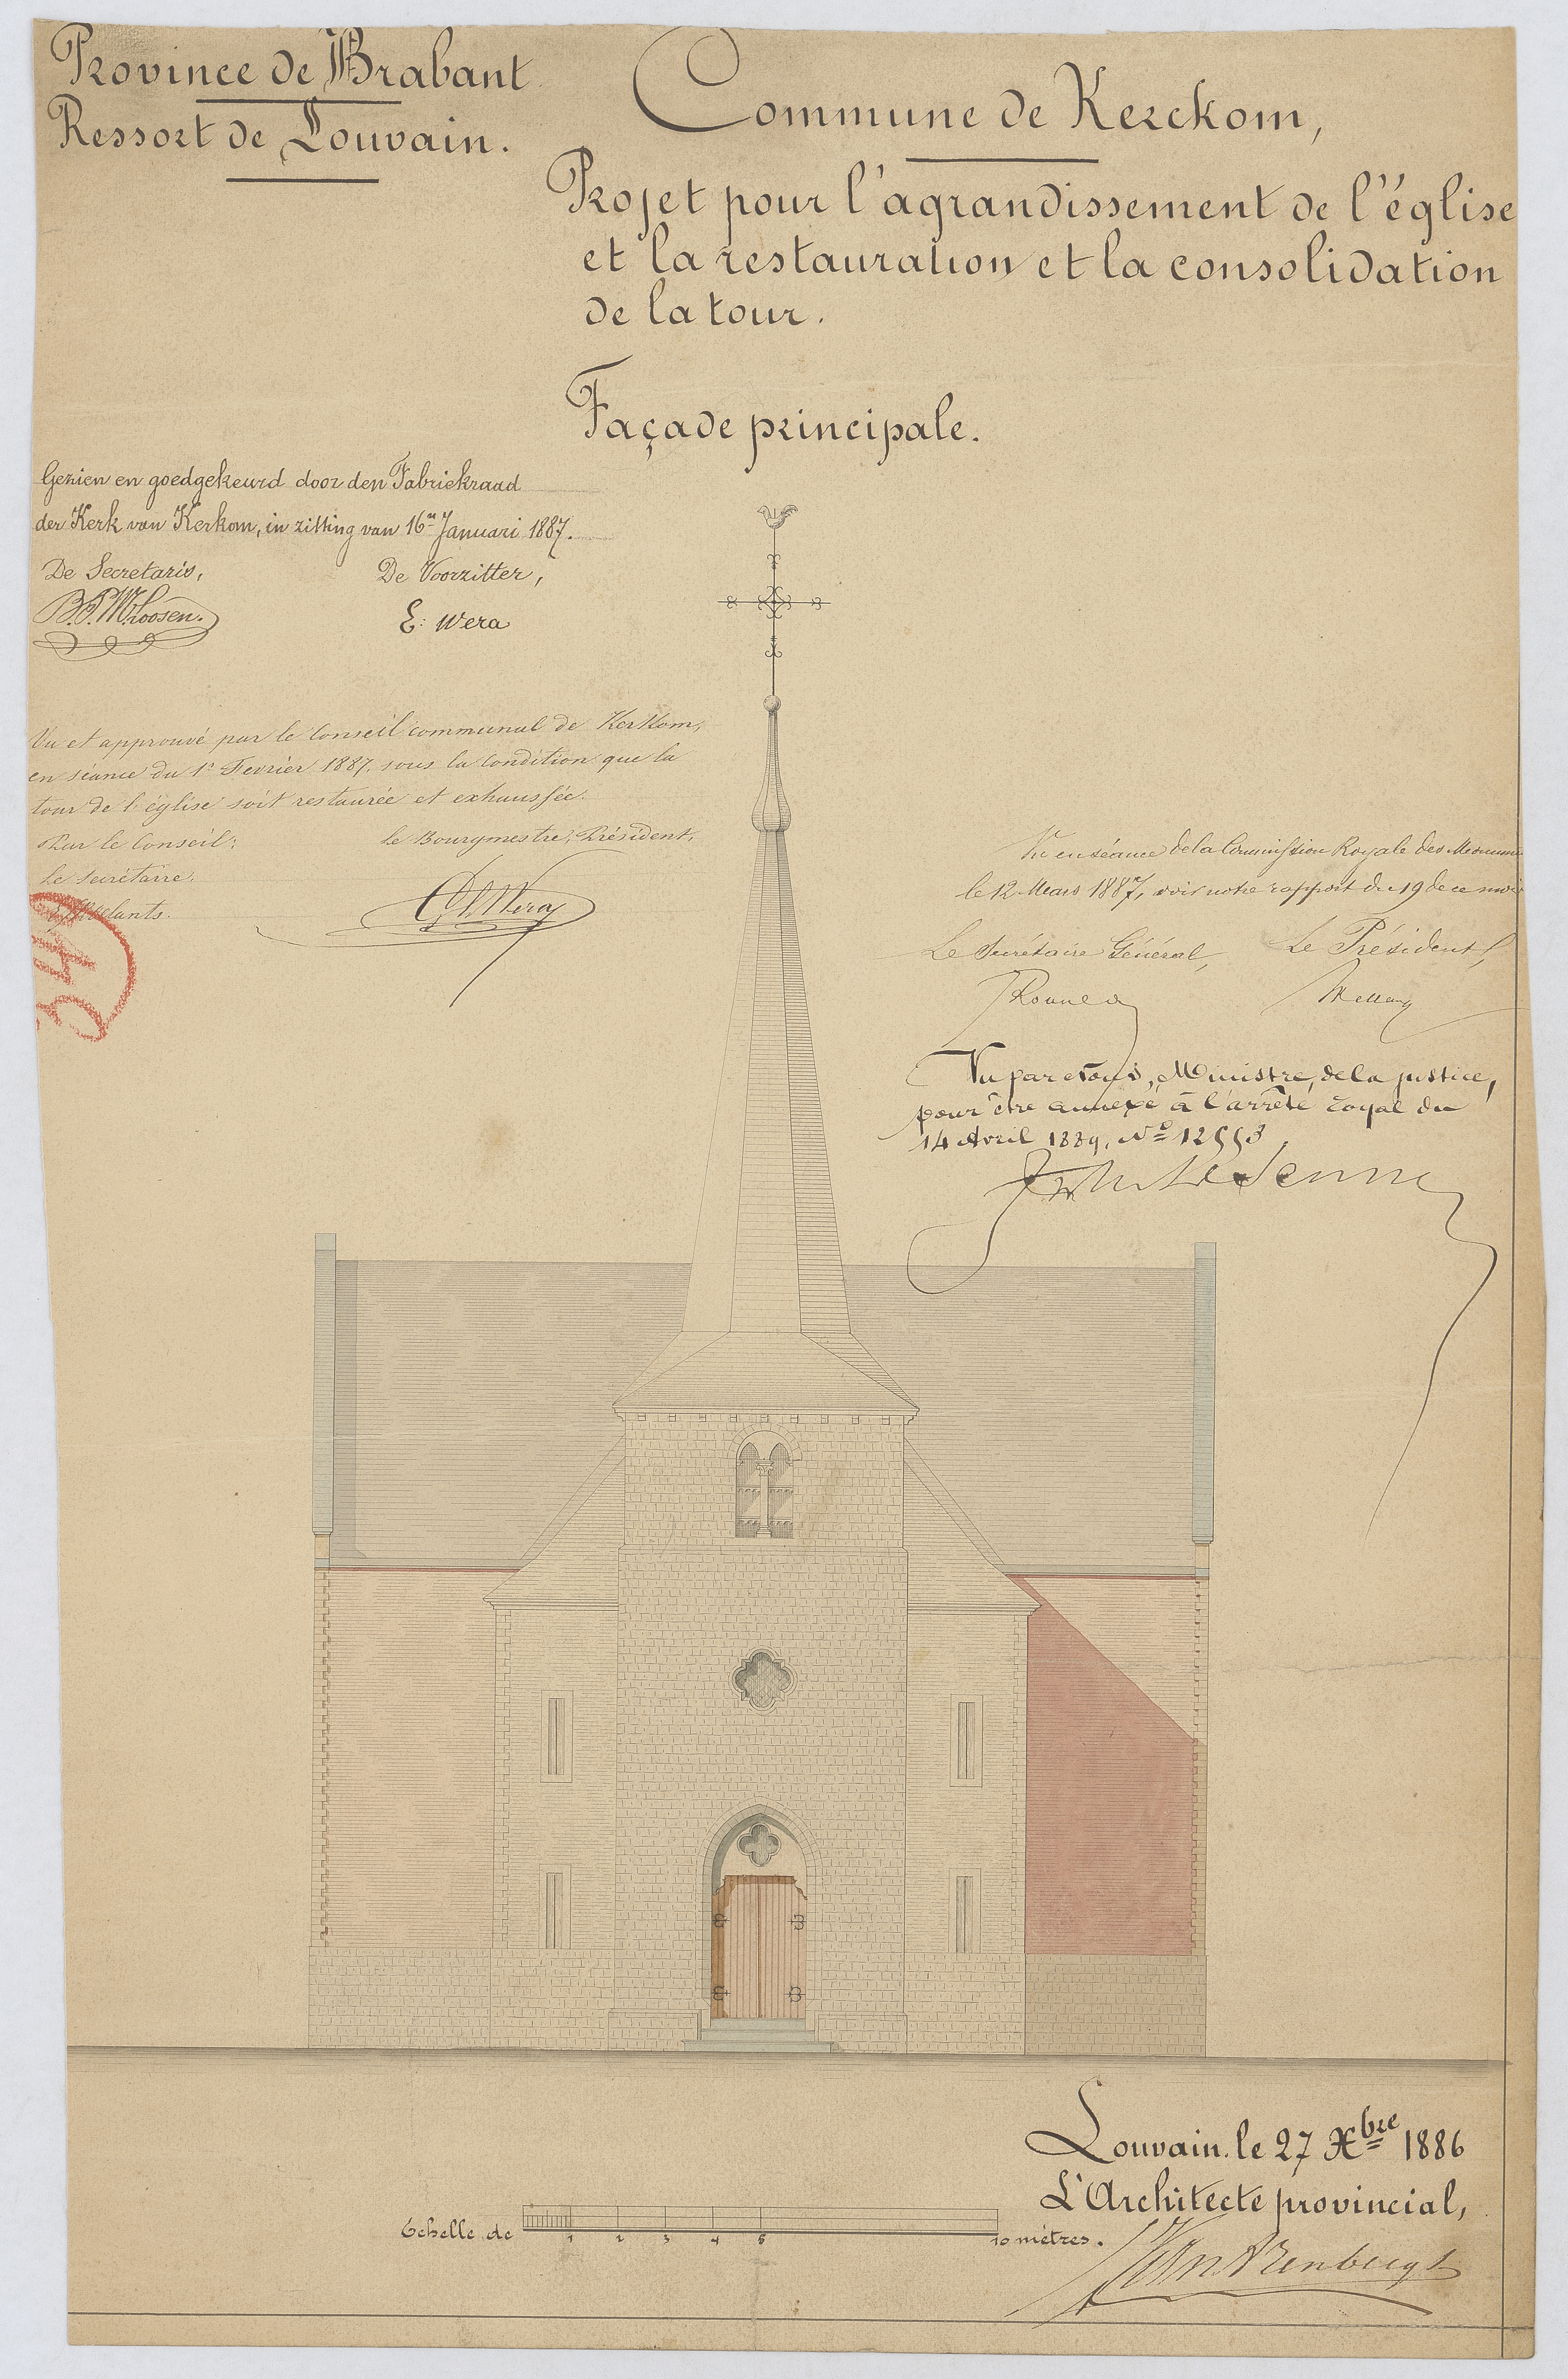 Province de Brabant
Ressort de Louvain.
Commune de Kerckom,
Projet pour l'agrandissement de l'église
et la restauration et la consolidation
de la tour.
Façade principale.
Gezien en goedgekeurd door den Fabriekraad
der Kerk van Kerkom, in zitting van 16en Januari 1887.
De Secretaris,
De Voorzitter,
E. Wera
Vu et approuvé par le Conseil communal de Kerkom,
en séance du 1r Fevrier 1887, sous la Condition que la
tour de l'église soit restaurée et exhaussée.
Par le Conseil:
Le Bourgmestre, Président,
Le Secrétaire.
Vu en séance de la Commission Royale des
le 12 Mars 1887, voir notre rapport du 19 de ce mois
Le Secrétaire Général,
Le Président,
Vu par Nous, Ministre de la justice,
pour être annexé à l'arrêté royal du
14 Avril 1889, No 12553
Louvain, le 27 Xbre 1886
L'Architecte provincial,
Echelle de
1 2 3 4 5
10 mètres.